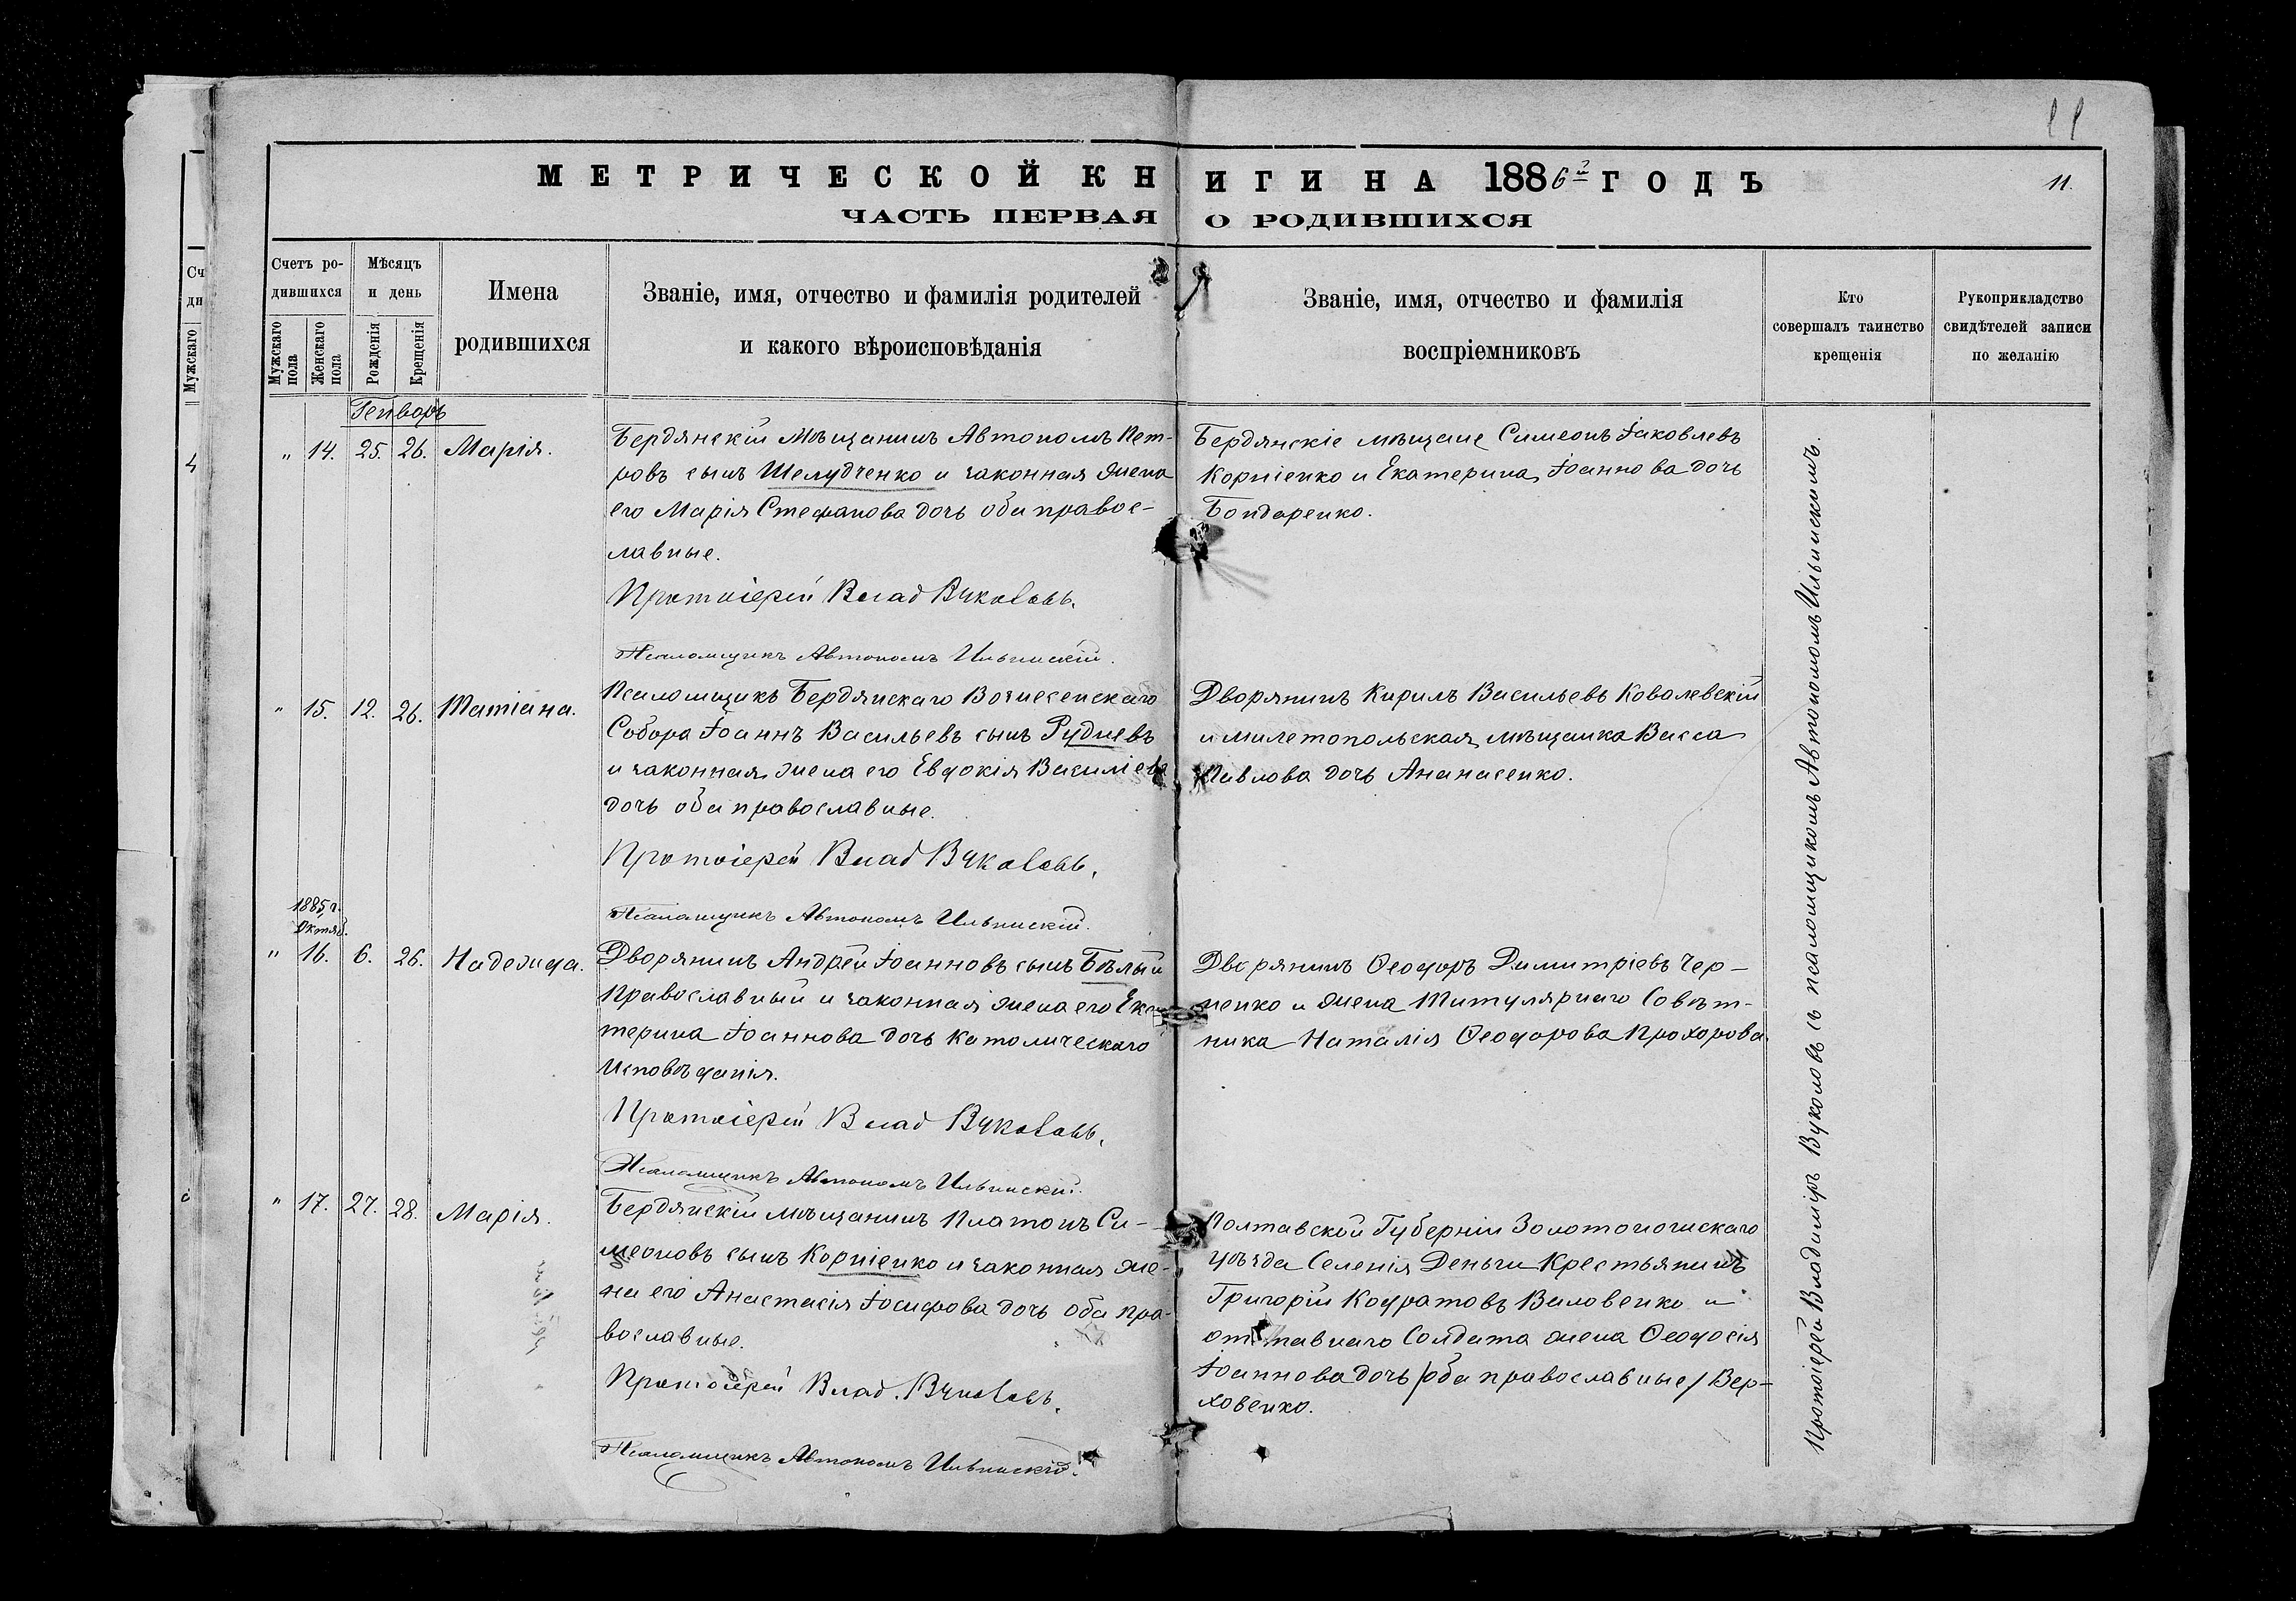 11
МЕТРИЧЕСКОЙ КНИГИ НА 1886й ГОДЪ
11.
ЧАСТЬ ПЕРВАЯ О РОДИВШИХСЯ
Счетъ ро-
дившихся
Мужскаго пола
Женскаго пола
Мѣсяцъ
и день
Рожденія
Крещенія
Имена
родившихся
Званіе, имя, отчество и фамилія родителей
и какого вѣроисповѣданія
Званіе, имя, отчество и фамилія
воспріемниковъ
Кто
совершалъ таинство
крещенія
Рукоприкладство
свидѣтелей записи
по желанію
Генворь
" 14. 25. 26. Марія.
Бердянскій Мѣщанинъ Автономъ Пет-
ровъ сынъ Шелудченко и законная жена
его Марія Стефанова дочь оба правос-
лавные.
Протоіерей Влад Вуколовъ.
Псаломщикъ Автономъ Ильинскій.
Бердянскіе мѣщане Симеонъ Іаковлевъ
Корніенко и Екатерина Іоаннова дочь
Бондаренко.
" 15. 12. 26. Татіана.
Псаломщикъ Бердянскаго Вознесенскаго
Собора Іоаннъ Васильевъ сынъ Рудневъ
и законная жена его Евдокія Василіева
дочь оба православные.
Протоіерей Влад Вуколовъ.
Псаломщикъ Автономъ Ильинскій.
Дворянинъ Кирилъ Васильевъ Ковалевскій
и милетопольская мѣщанка Васса
Павлова дочь Ананасенко.
1885 г.
Октяб.
" 16. 6. 26. Надежда.
Дворянинъ Андрей Іоанновъ сынъ Бѣлый
православный и законная жена его Ека
терина Іоаннова дочь католическаго
исповѣданія.
Протоіерей Влад Вуколовъ.
Псаломщикъ Автономъ Ильинскій.
Дворянинъ Ѳеодоръ Димитріевъ Чер-
ненко и жена Титулярнаго Совѣт-
ника Наталія Ѳеодорова Прохорова.
" 17. 27. 28. Марія.
Бердянскій мѣщанинъ Платонъ Си-
меоновъ сынъ Корніенко и законная же-
на его Анастасія Іосифова дочь оба пра-
вославные.
Протоіерей Влад. Вуколовъ.
Псаломщикъ Автономъ Ильинскій.
Полтавской Губерніи Золотоношскаго
уѣзда Селенія Деньги Крестьянинъ
Григорій Кодратовъ Виловенко и
отставнаго Солдата жена Ѳеодосія
Іоаннова дочь /оба православные/ Вер-
ховенко.
Протоіерей Владиміръ Вуколовъ съ псаломщикомъ Автономомъ Ильинскимъ.